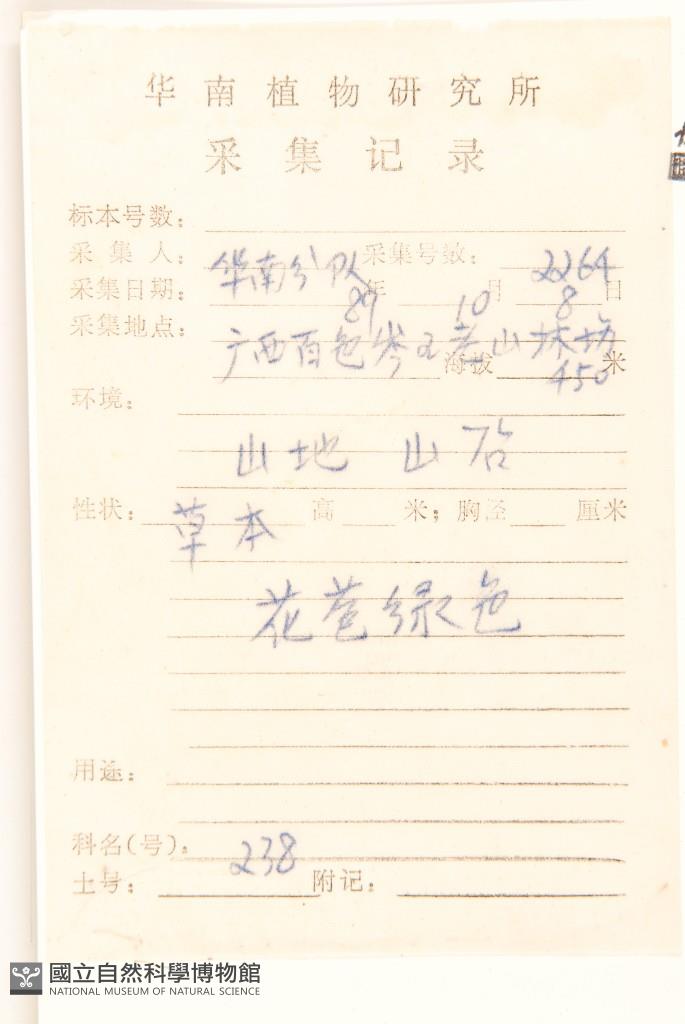 华南植物研究所
采集记录
标本号数：
采集人：华南分队 采集号数：2264
采集日期：89年10月8日
采集地点：广西百色岑王老山林场
海拔450米
环境：
山地 山
性状：草本 高 米；胸径 厘米
花苞绿色
用途：
科名(号)：238
土号： 附记：
國立自然科學博物館
NATIONAL MUSEUM OF NATURAL SCIENCE